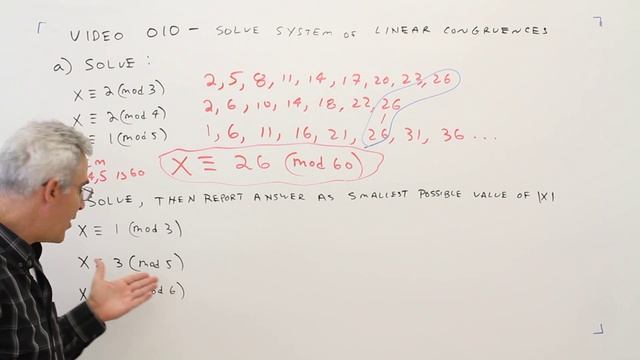 VIDEO 010 - SOLVE SYSTEM OF LINEAR CONGRUENCES
a) SOLVE :
X ≡ 2 (mod 3) 2, 5, 8, 11, 14, 17, 20, 23, 26
X ≡ 2 (mod 4) 2, 6, 10, 14, 18, 22, 26
≡ 1 (mod 5) 1, 6, 11, 16, 21, 26, 31, 36 ...
X ≡ 26 (mod 60)
4, 5 is 60
SOLVE, THEN REPORT ANSWER AS SMALLEST POSSIBLE VALUE OF |X|
X ≡ 1 (mod 3)
X ≡ 3 (mod 5)
X mod 6)